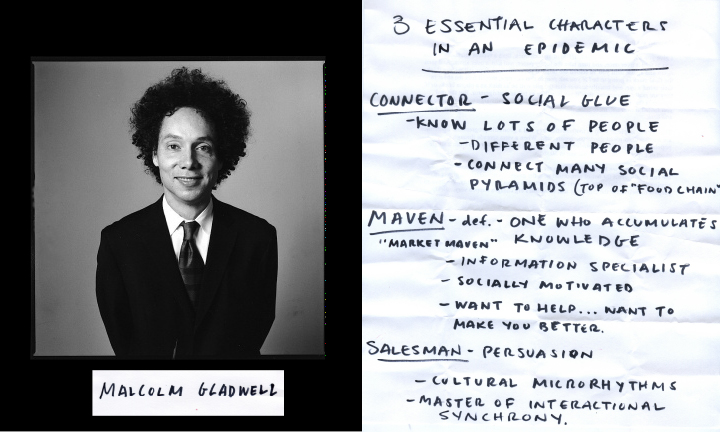 MALCOLM GLADWELL
3 ESSENTIAL CHARACTERS
IN AN EPIDEMIC
CONNECTOR - SOCIAL GLUE
- KNOW LOTS OF PEOPLE
- DIFFERENT PEOPLE
- CONNECT MANY SOCIAL
PYRAMIDS (TOP OF "FOOD CHAIN"
MAVEN - def. - ONE WHO ACCUMULATES
"MARKET MAVEN" KNOWLEDGE
- INFORMATION SPECIALIST
- SOCIALLY MOTIVATED
- WANT TO HELP... WANT TO
MAKE YOU BETTER.
SALESMAN - PERSUASION
- CULTURAL MICRORHYTHMS
- MASTER OF INTERACTIONAL
SYNCHRONY.